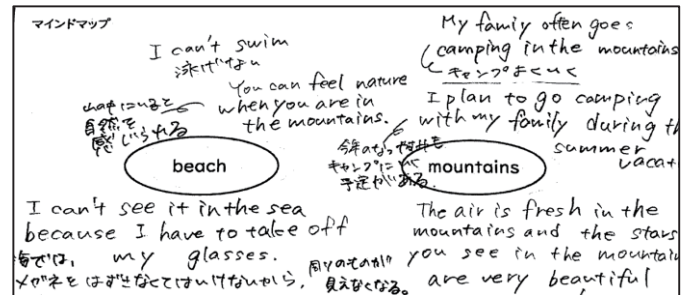 マインドマップ
I can't swim
泳げない
You can feel nature
when you are in
the mountains.
山中にいると
自然を
感じられる
My family often goes
camping in the mountains
キャンプよくいく
I plan to go camping
with my family during th
summer
vacat
予定がある
キャンプに
beach
mountains
I can't see it in the sea
because I have to take off
my glasses.
海では、
メガネをはずさなくてはいけないから、
周りのものが
見えなくなる。
The air is fresh in the
mountains and the stars
you see in the mountain
are very beautiful